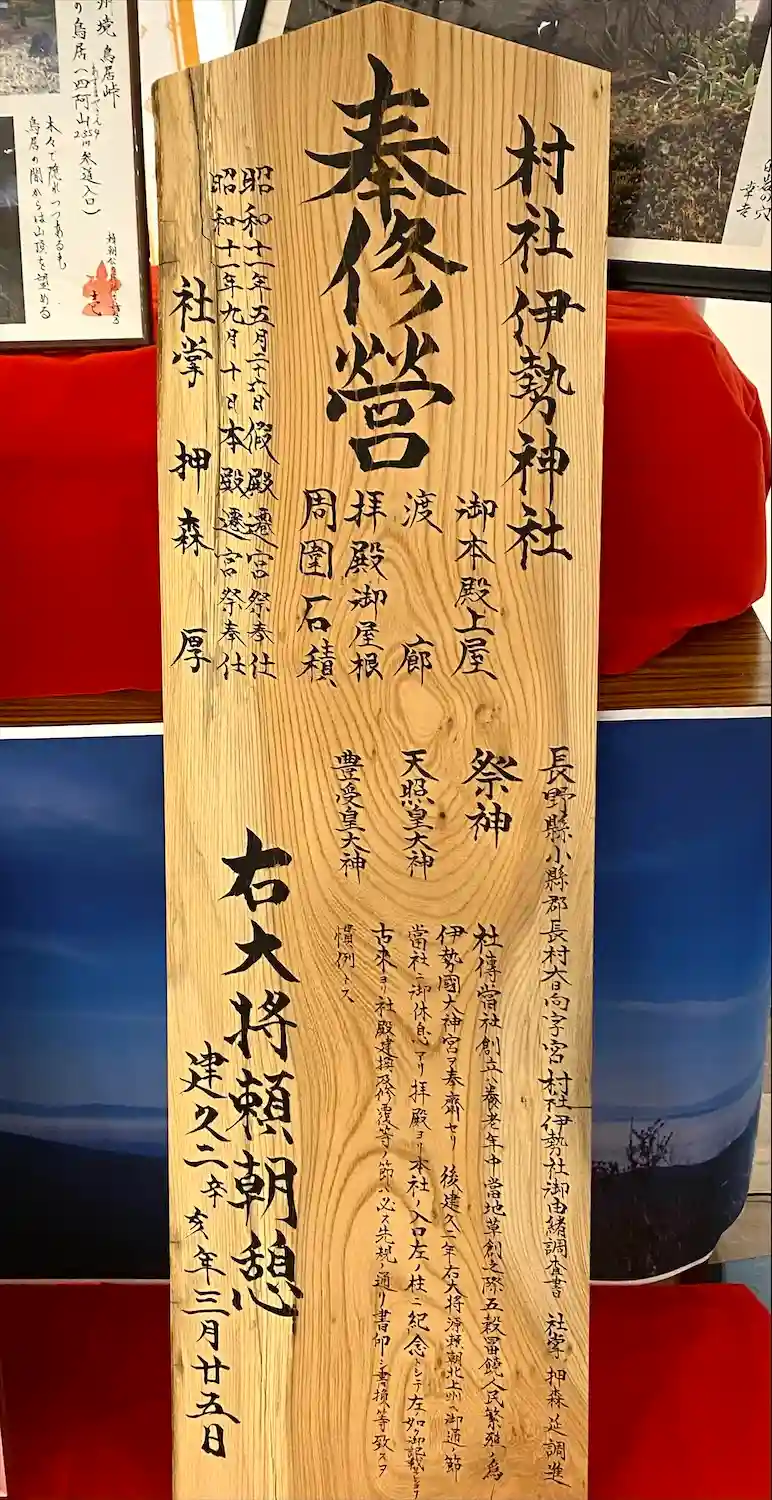 村社伊勢神社
奉修營
御本殿上屋
渡廊
拝殿御屋根
周囲石積
昭和十一年五月二十六日假殿遷宮祭奉仕
昭和十一年九月十日本殿遷宮祭奉仕
社掌 押森 厚
長野縣小縣郡長村大日向字宮 村社伊勢社御由緒調査書 社掌 押森 延調進
祭神
天照皇大神
豊受皇大神
社傳當社創立ハ養老年中當地草創之際五穀冨饒人民繁殖ノ為
伊勢國大神宮ヲ奉齋セリ 後建久二年右大将源頼朝北上州ヘ御通ノ節
當社ニ御休息アリ拝殿ヨリ本社ノ入口左ノ柱ニ紀念トシテ左ノ如ク御記載
古來ヨリ社殿建換及修覆等ノ節ハ必ス先規ノ通リ書印シ書損等致スヲ
慣例トス
右大将頼朝憩
建久二辛亥年三月廿五日
境 鳥居峠
り鳥居(四阿山2354m参道入口)
木々で隠れつつあるも
鳥居の間からは山頂を望める